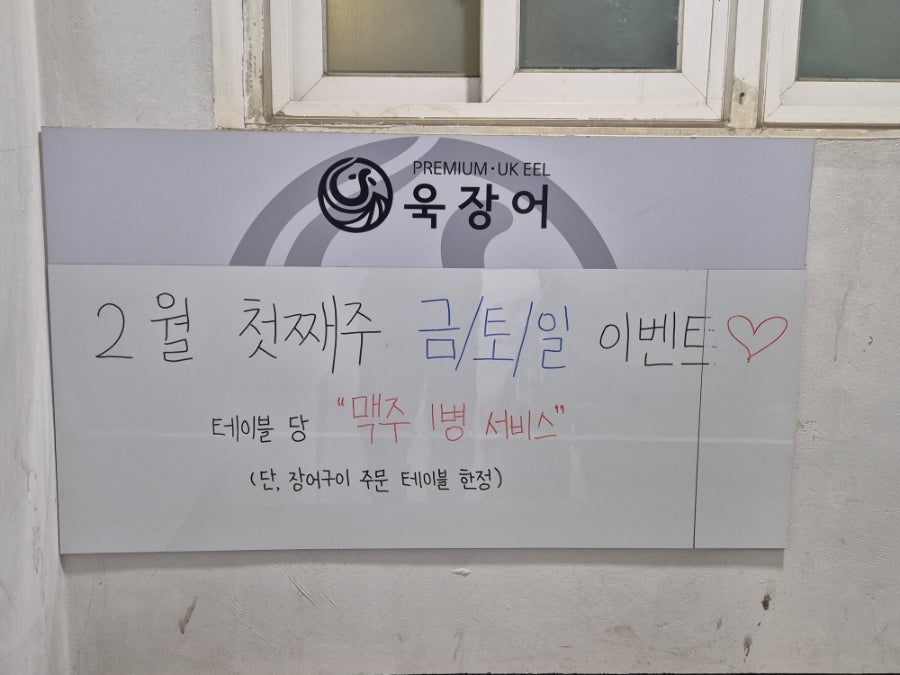 PREMIUM·UK EEL
욱장어
2월 첫째주 금/토/일 이벤트♡
테이블 당 "맥주 1병 서비스"
(단, 장어구이 주문 테이블 한정)